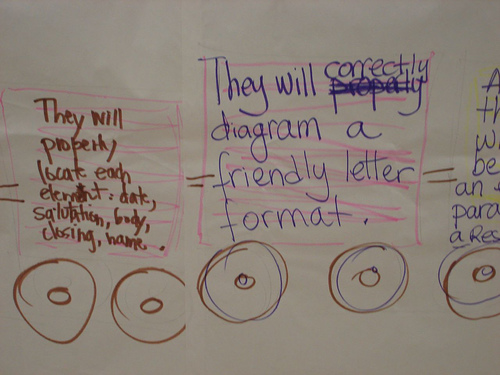 They will
properly
locate each
element: date,
salutation, body,
closing, name.
They will correctly
diagram a
friendly letter
format.
th
be
an
para
a Res